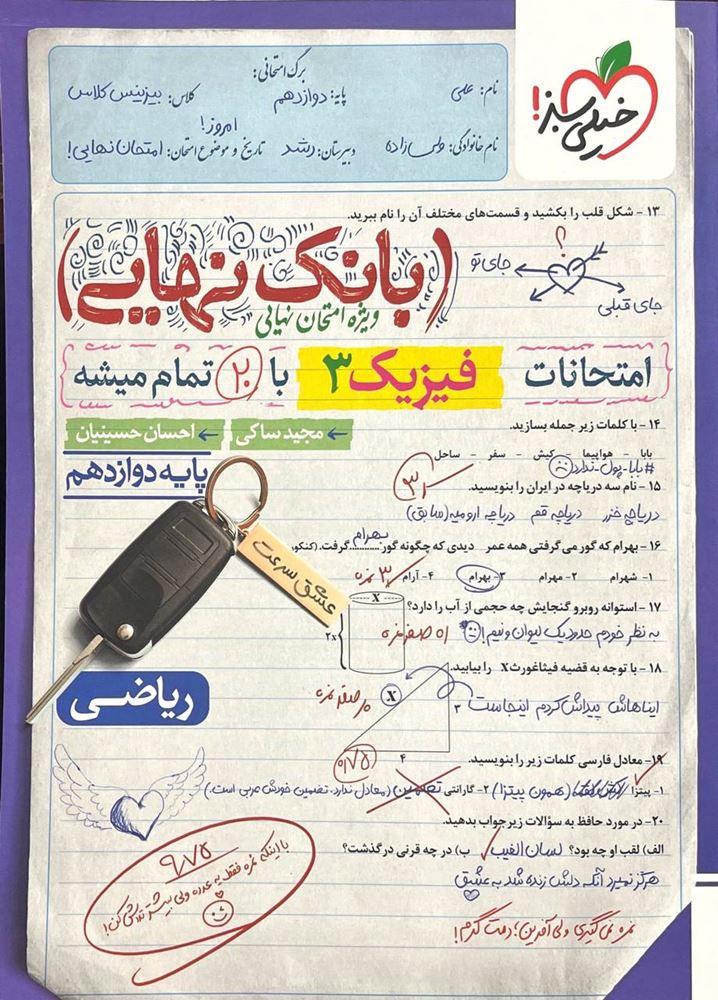 خیلی سبز!
برگ امتحانی:
نام: علی
پایه: دوازدهم
کلاس: بیزینس کلاس
نام خانوادگی: ولی زاده
دبیرستان: رشد
تاریخ و موضوع امتحان: امروز! امتحان نهایی!
۱۳ - شکل قلب را بکشید و قسمت‌های مختلف آن را نام ببرید.
؟
جای تو
جای قبلی
(بانک نهایی)
ویژه امتحان نهایی
امتحانات فیزیک ۳ با ۲۰ تمام میشه
۱۴ - با کلمات زیر جمله بسازید.
مجید ساکی احسان حسینیان
بابا - هواپیما - کیش - سفر - ساحل
#بابا-پول-ندارد
پایه دوازدهم
۱۵ - نام سه دریاچه در ایران را بنویسید.
دریاچه خزر دریاچه قم دریاچه ارومیه (سابق)
۱۶ - بهرام که گور می‌گرفتی همه عمر دیدی که چگونه گور بهرام گرفت. (کنکور
۱- شهرام ۲- مهرام ۳- بهرام ۴- آرام
عشق سرعت
۱۷ - استوانه روبرو گنجایش چه حجمی از آب را دارد؟
X
۲x
به نظر خودم حدود یک لیوان و نیم!
۱۸ - با توجه به قضیه فیثاغورث X را بیابید.
X
ایناهاش پیداش کردم اینجاست
۳
۴
ریاضی
۰/۷۵
۱۹- معادل فارسی کلمات زیر را بنویسید.
۱- پیتزا (همون پیتزا) ۲- گارانتی تضمین (معادل ندارد. تضمین خودش عربی است.)
۲۰- در مورد حافظ به سؤالات زیر جواب بدهید.
الف) لقب او چه بود؟ لسان الغیب ب) در چه قرنی درگذشت؟
هرگز نمیرد آنکه دلش زنده شد به عشق
۹/۷۵
با اینکه نمره فقط یه عدده ولی بیشتر تلاش کن!
نمره نمی‌گیری ولی آفرین؛ دمت گرم!